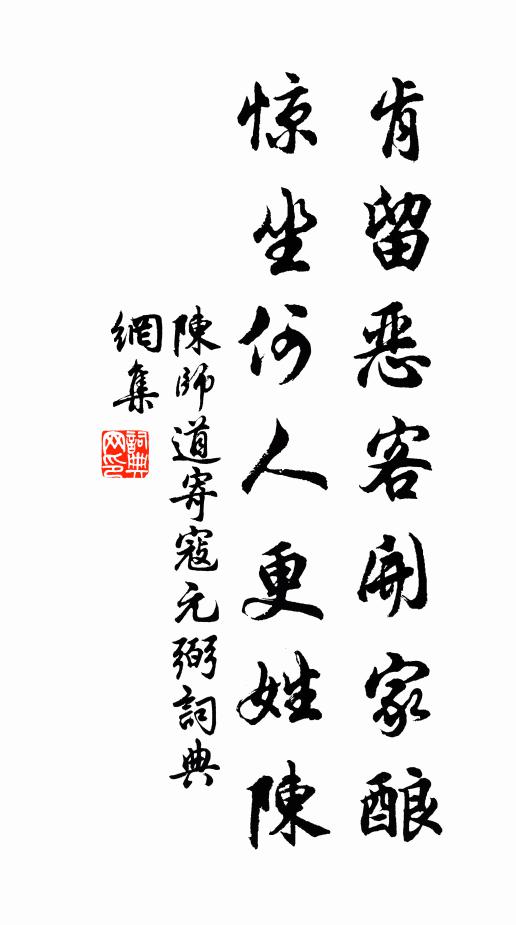 肯留恶客開家酿
惊坐何人更姓陳
陳師道寄寇元弼詞典
網集
詞典
网印